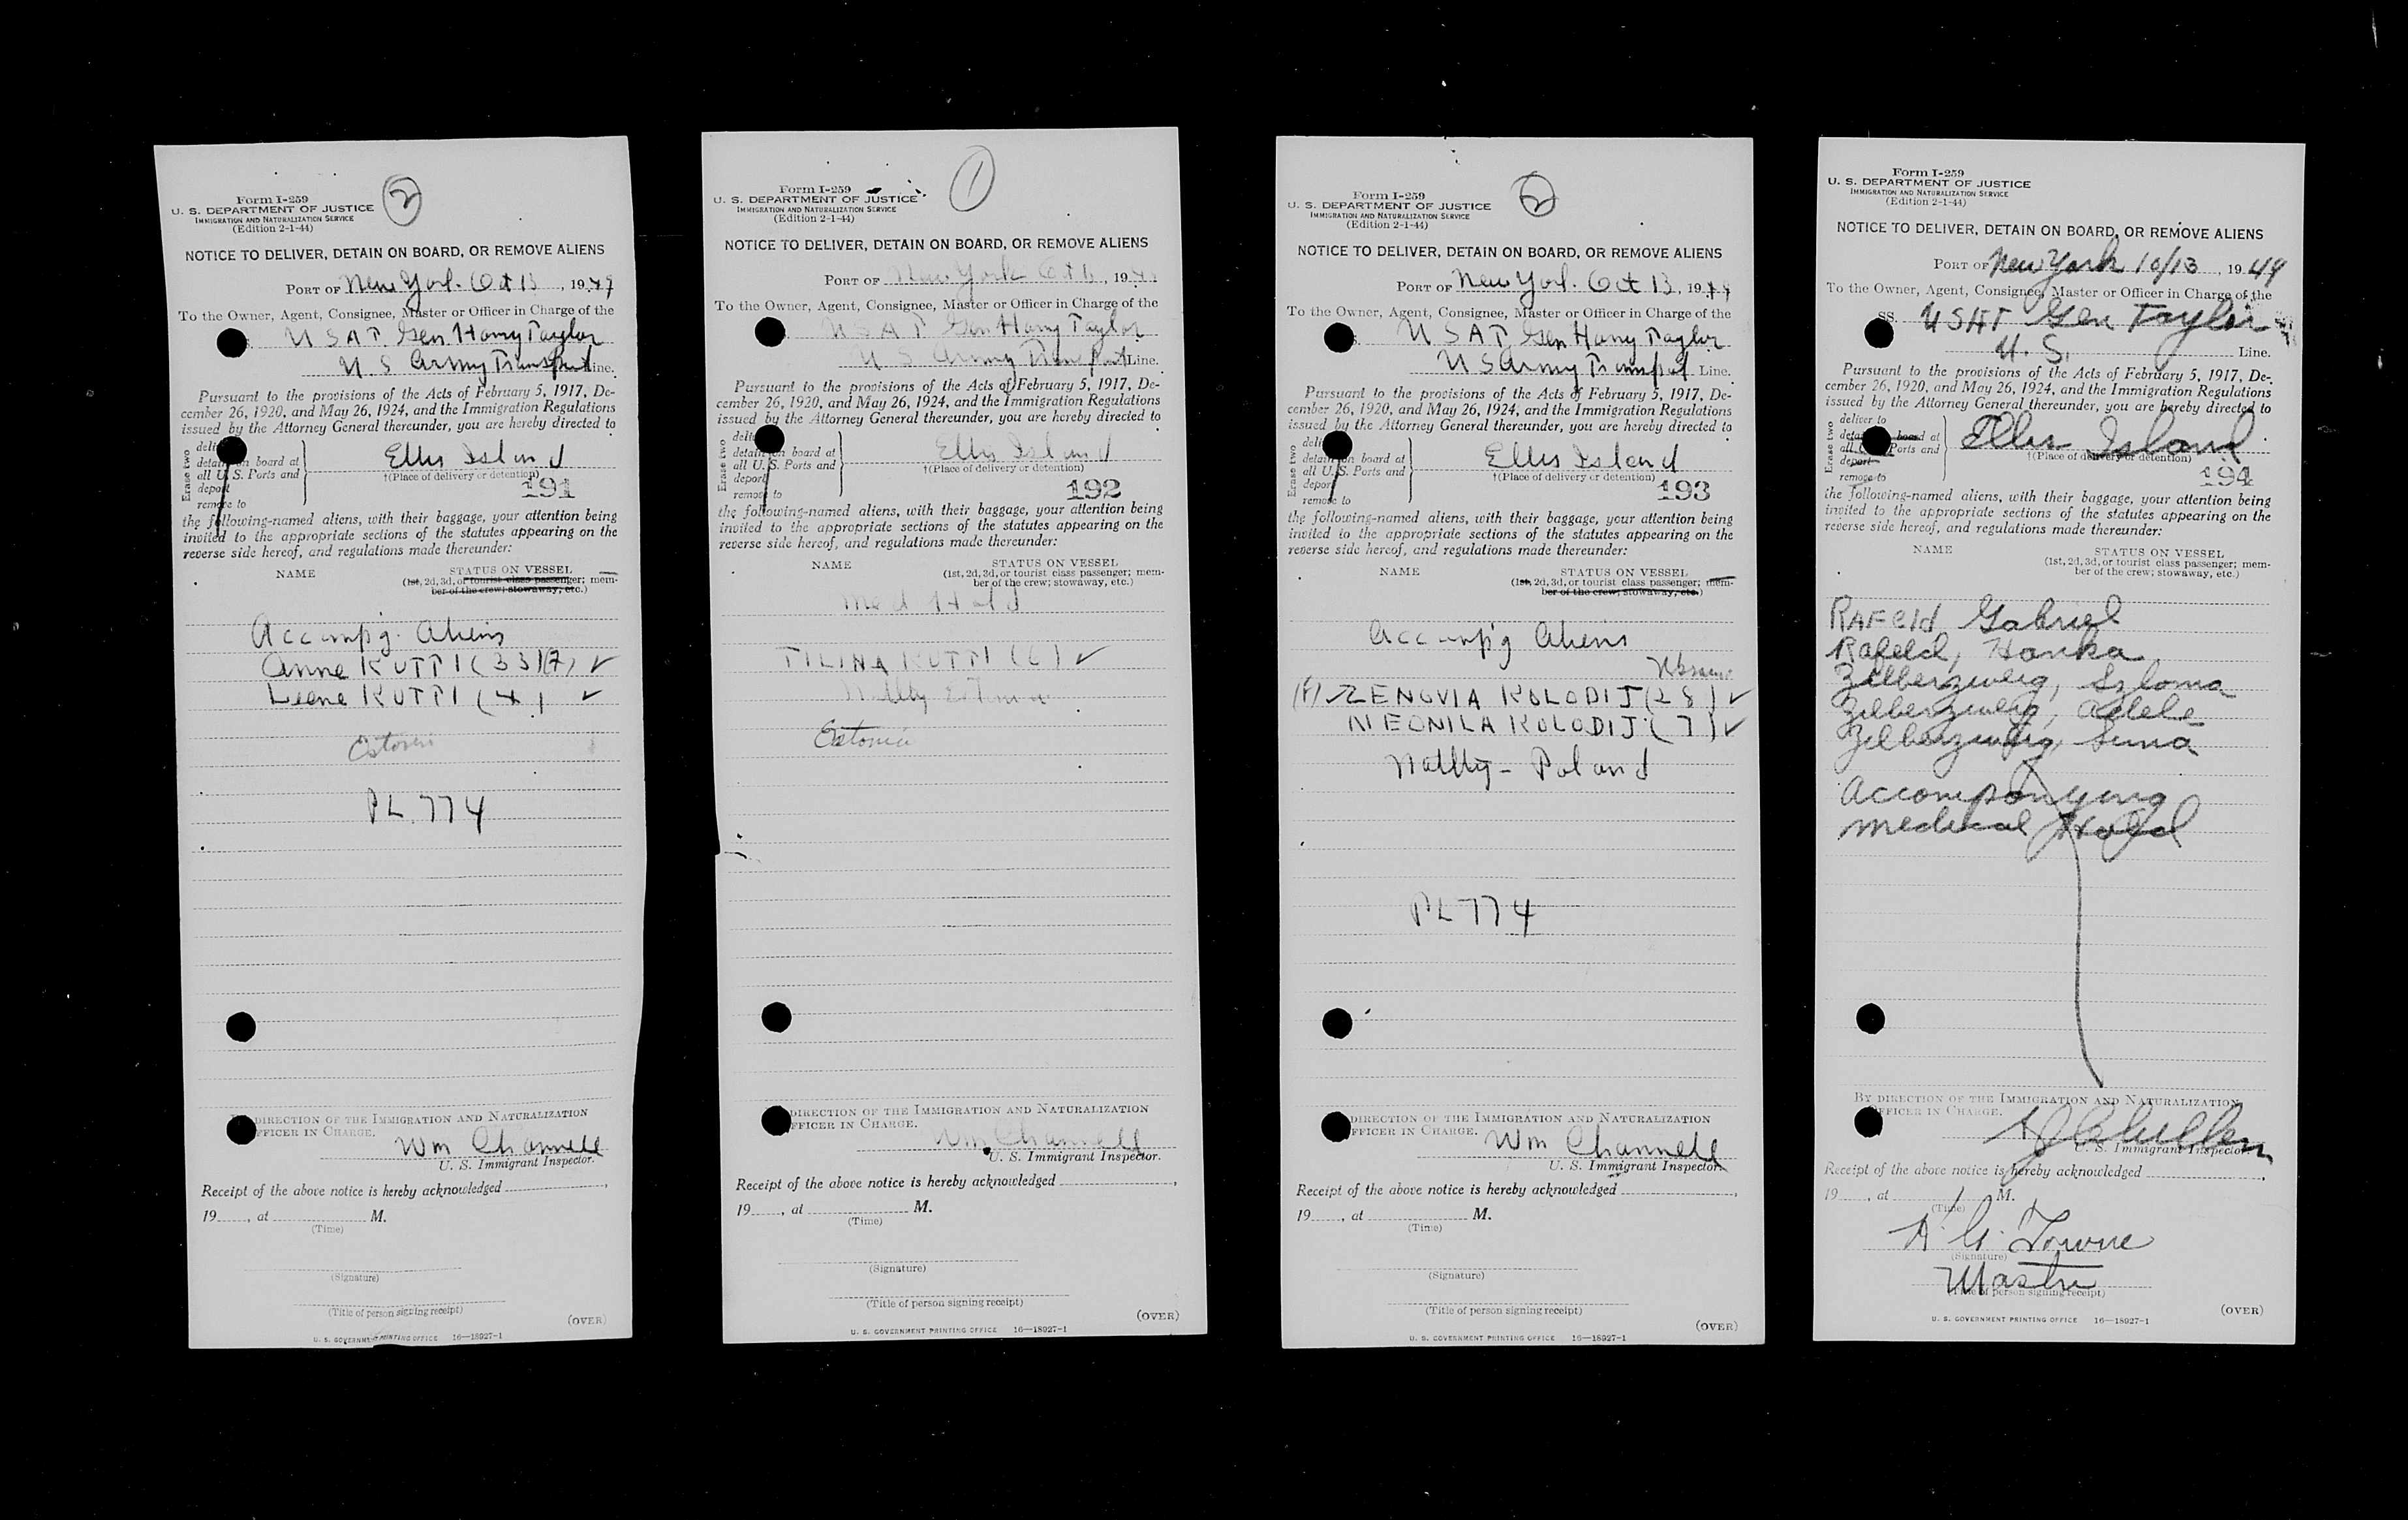 Form I-259
U. S. DEPARTMENT OF JUSTICE
IMMIGRATION AND NATURALIZATION SERVICE
(Edition 2-1-44)
2
NOTICE TO DELIVER, DETAIN ON BOARD, OR REMOVE ALIENS
PORT OF New York Oct 13, 1949
To the Owner, Agent, Consignee, Master or Officer in Charge of the
U S A T. Gen Harry Taylor
U. S Army Transport Line.
Pursuant to the provisions of the Acts of February 5, 1917, De-
cember 26, 1920, and May 26, 1924, and the Immigration Regulations
issued by the Attorney General thereunder, you are hereby directed to
Erase two
deli
detain on board at
all U. S. Ports and
deport
remove to
Ellis Island
†(Place of delivery or detention)
191
the following-named aliens, with their baggage, your attention being
invited to the appropriate sections of the statutes appearing on the
reverse side hereof, and regulations made thereunder:
NAME
STATUS ON VESSEL
(1st, 2d, 3d, or tourist class passenger; mem-
ber of the crew; stowaway, etc.)
Accompg. Aliens
Anne KUTTI (33) (F) ✓
Leene KUTTI (4) ✓
Estonia
PL 774
DIRECTION OF THE IMMIGRATION AND NATURALIZATION
FFICER IN CHARGE.
Wm Channell
U. S. Immigrant Inspector.
Receipt of the above notice is hereby acknowledged
19, at M.
(Time)
(Signature)
(Title of person signing receipt)
(OVER)
U. S. GOVERNMENT PRINTING OFFICE 16—18927-1
Form I-259
U. S. DEPARTMENT OF JUSTICE
IMMIGRATION AND NATURALIZATION SERVICE
(Edition 2-1-44)
1
NOTICE TO DELIVER, DETAIN ON BOARD, OR REMOVE ALIENS
PORT OF New York Oct 13, 1949
To the Owner, Agent, Consignee, Master or Officer in Charge of the
U S A T Gen Harry Taylor
U S Army Transport Line.
Pursuant to the provisions of the Acts of February 5, 1917, De-
cember 26, 1920, and May 26, 1924, and the Immigration Regulations
issued by the Attorney General thereunder, you are hereby directed to
Erase two
deli
detain on board at
all U. S. Ports and
deport
remove to
Ellis Island
†(Place of delivery or detention)
192
the following-named aliens, with their baggage, your attention being
invited to the appropriate sections of the statutes appearing on the
reverse side hereof, and regulations made thereunder:
NAME
STATUS ON VESSEL
(1st, 2d, 3d, or tourist class passenger; mem-
ber of the crew; stowaway, etc.)
Med Hold
TILINA KUTTI (6) ✓
Natlty Estonia
Estonia
DIRECTION OF THE IMMIGRATION AND NATURALIZATION
FFICER IN CHARGE.
Wm Channell
U. S. Immigrant Inspector.
Receipt of the above notice is hereby acknowledged
19, at M.
(Time)
(Signature)
(Title of person signing receipt)
(OVER)
U. S. GOVERNMENT PRINTING OFFICE 16—18927-1
Form I-259
U. S. DEPARTMENT OF JUSTICE
IMMIGRATION AND NATURALIZATION SERVICE
(Edition 2-1-44)
2
NOTICE TO DELIVER, DETAIN ON BOARD, OR REMOVE ALIENS
PORT OF New York Oct 13, 1949
To the Owner, Agent, Consignee, Master or Officer in Charge of the
U S A T Gen Harry Taylor
U S Army Transport Line.
Pursuant to the provisions of the Acts of February 5, 1917, De-
cember 26, 1920, and May 26, 1924, and the Immigration Regulations
issued by the Attorney General thereunder, you are hereby directed to
Erase two
deli
detain on board at
all U. S. Ports and
deport
remove to
Ellis Island
†(Place of delivery or detention)
193
the following-named aliens, with their baggage, your attention being
invited to the appropriate sections of the statutes appearing on the
reverse side hereof, and regulations made thereunder:
NAME
STATUS ON VESSEL
(1st, 2d, 3d, or tourist class passenger; mem-
ber of the crew; stowaway, etc.)
Accompg Aliens
(F) ZENOVIA KOLODIJ (28) ✓
NEONILA KOLODIJ (7) ✓
Natlty - Poland
PL 774
DIRECTION OF THE IMMIGRATION AND NATURALIZATION
FFICER IN CHARGE.
Wm Channell
U. S. Immigrant Inspector.
Receipt of the above notice is hereby acknowledged
19, at M.
(Time)
(Signature)
(Title of person signing receipt)
(OVER)
U. S. GOVERNMENT PRINTING OFFICE 16—18927-1
Form I-259
U. S. DEPARTMENT OF JUSTICE
IMMIGRATION AND NATURALIZATION SERVICE
(Edition 2-1-44)
NOTICE TO DELIVER, DETAIN ON BOARD, OR REMOVE ALIENS
PORT OF New York 10/13, 1949
To the Owner, Agent, Consignee, Master or Officer in Charge of the
SS. USAT Gen Taylor
U. S. Line.
Pursuant to the provisions of the Acts of February 5, 1917, De-
cember 26, 1920, and May 26, 1924, and the Immigration Regulations
issued by the Attorney General thereunder, you are hereby directed to
Erase two
deliver to
detain on board at
all U. S. Ports and
deport
remove to
Ellis Island
†(Place of delivery or detention)
194
the following-named aliens, with their baggage, your attention being
invited to the appropriate sections of the statutes appearing on the
reverse side hereof, and regulations made thereunder:
NAME
STATUS ON VESSEL
(1st, 2d, 3d, or tourist class passenger; mem-
ber of the crew; stowaway, etc.)
RAFELD Gabriel
Rafeld, Hanka
Zilberzweig, Szloma
Zilberzweig, Adele
Zilberzweig, Sima
Accompanying
medical Hold
BY DIRECTION OF THE IMMIGRATION AND NATURALIZATION
OFFICER IN CHARGE.
U. S. Immigrant Inspector.
Receipt of the above notice is hereby acknowledged
19, at M.
(Time)
A. G. Towne
(Signature)
Master
(Title of person signing receipt)
(OVER)
U. S. GOVERNMENT PRINTING OFFICE 16—18927-1